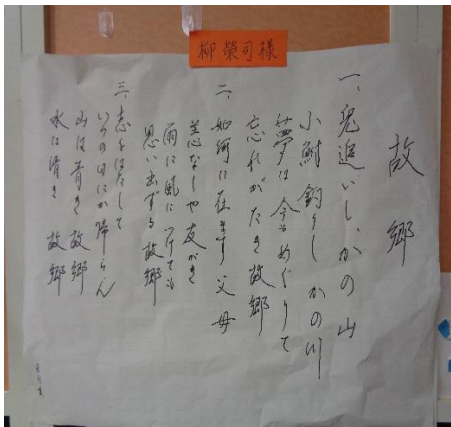 柳 榮司様
故郷
一、兎追いし、かの山
小鮒釣りし かの川
夢は今もめぐりて
忘れがたき故郷
二、如何に在ます父母
恙なしや友がき
雨に風につけても
思い出ずる故郷
三、志をはたして
いつの日にか帰らん
山は青き故郷
水は清き 故郷